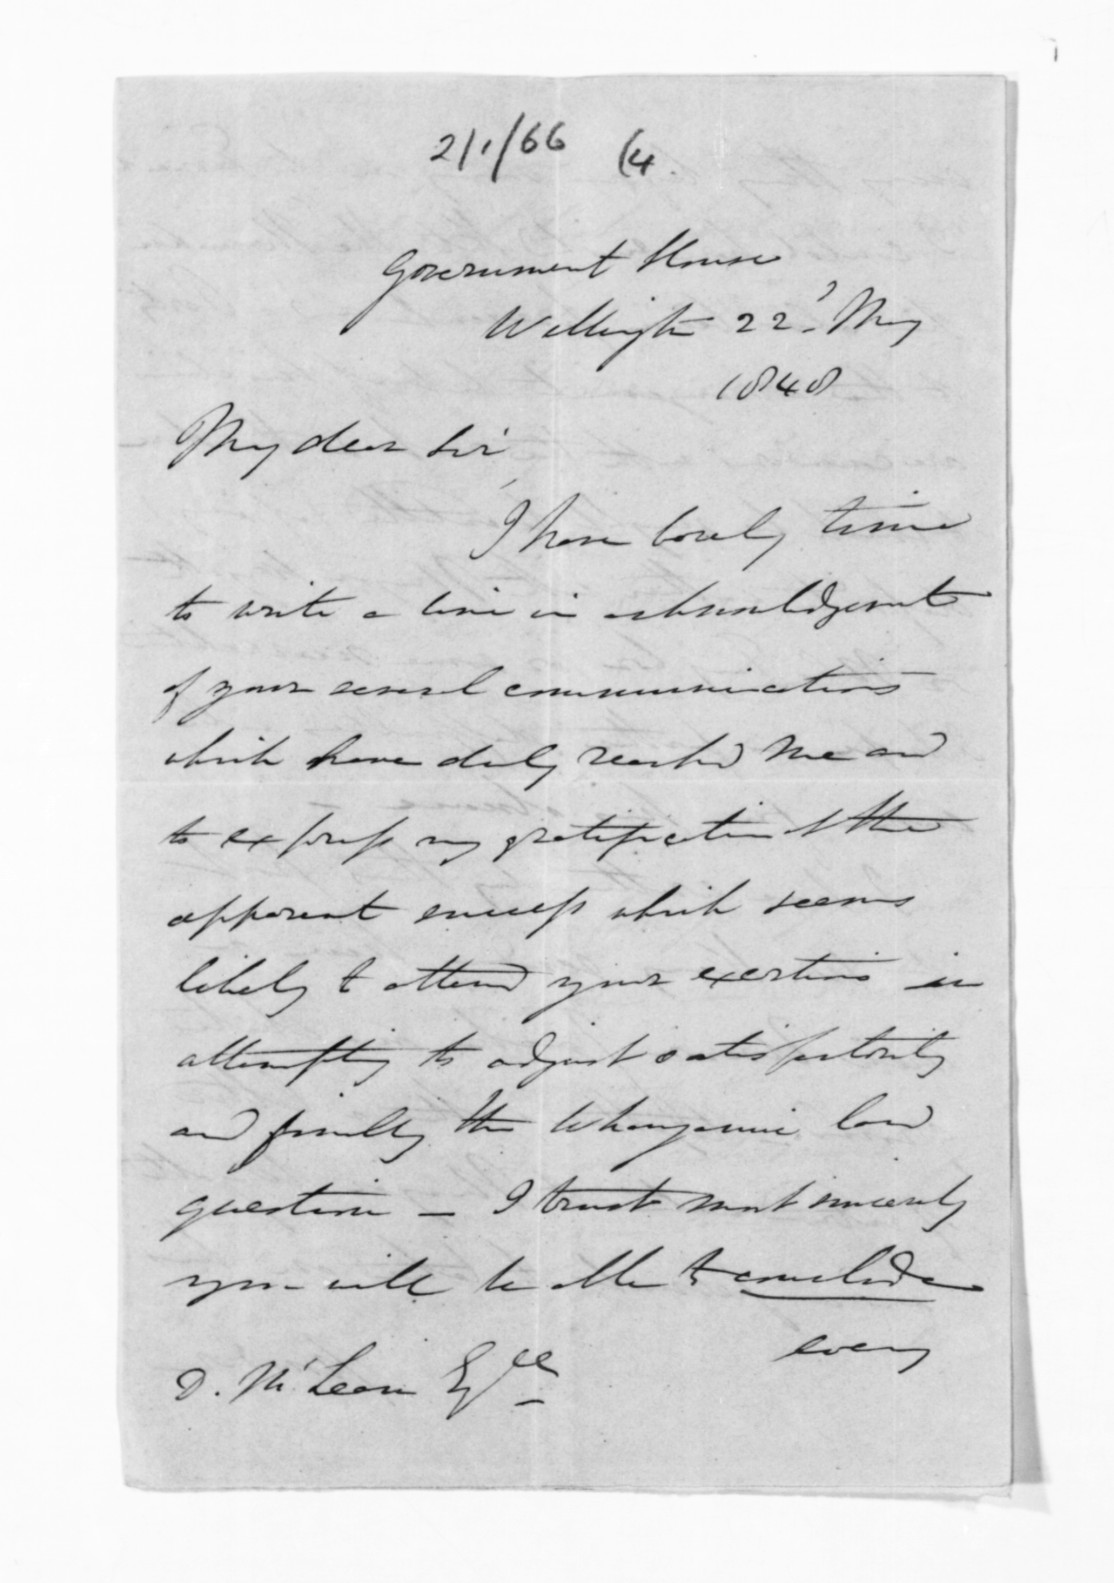 2/1/66 (4.
Government House
Wellington 22d. May
1848
My dear Sir
I have barely time
to write a line in acknowledgement
of your several communications
which have duly reached me and
to express my gratification at the
apparent success which seems
likely to attend your exertions in
attempting to adjust satisfactorily
and finally the Whanganui land
question – I trust most sincerely
you will be able to conclude
every
D. McLean Esqre